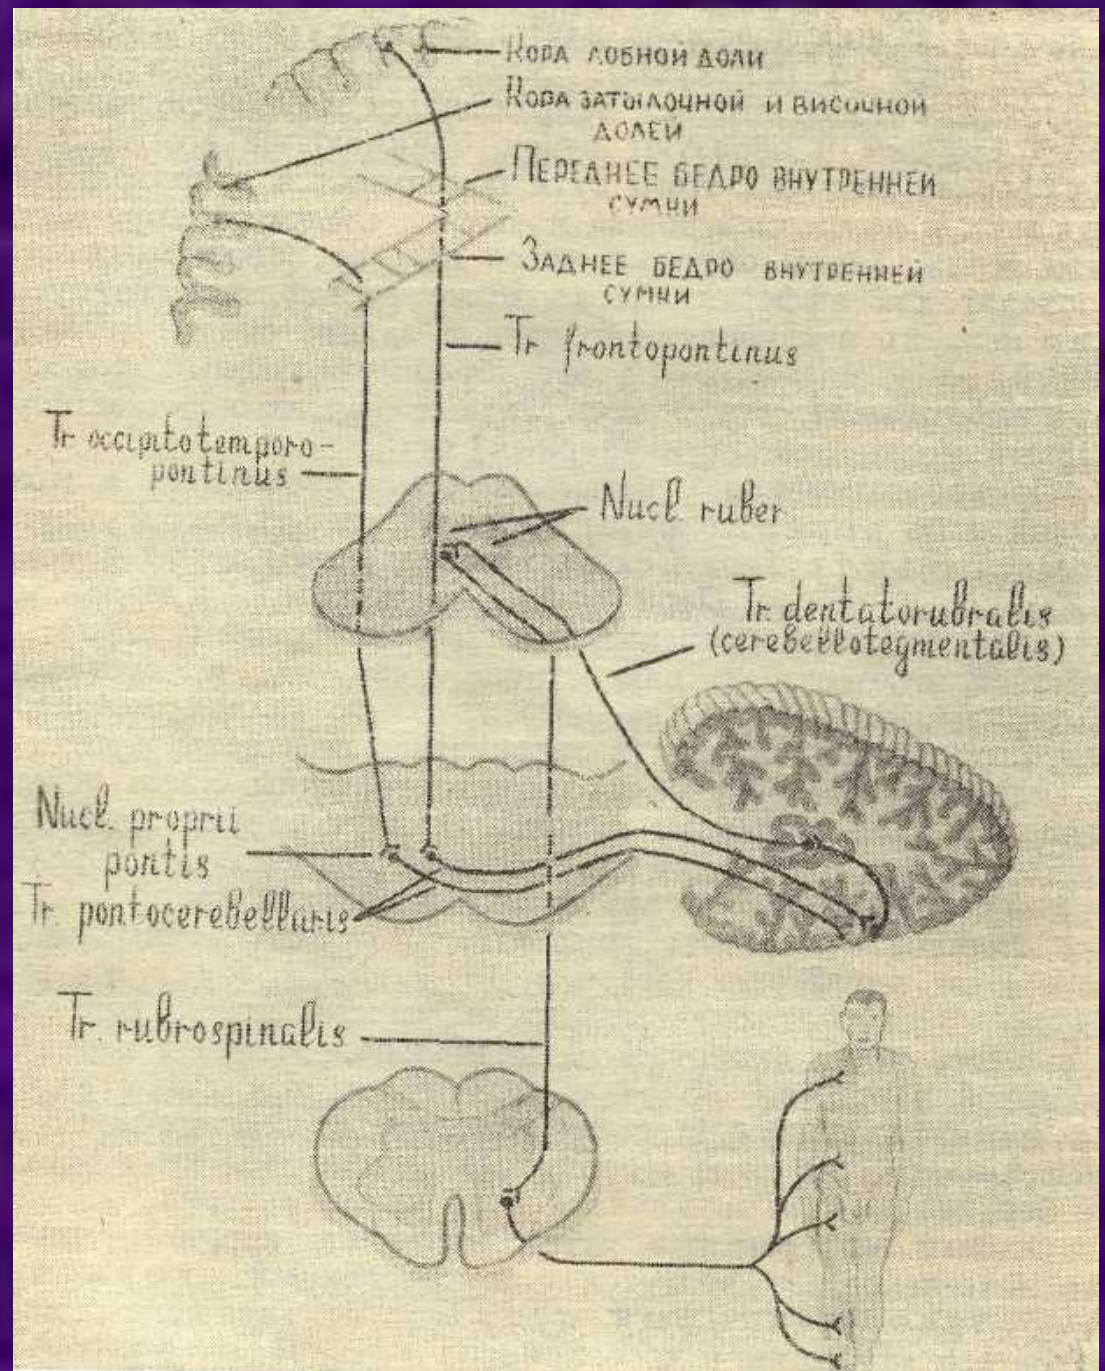 Кора лобной доли
Кора затылочной и височной
долей
Переднее бедро внутренней
сумки
Заднее бедро внутренней
сумки
Tr frontopontinus
Tr occipitotemporo-
pontinus
Nucl. ruber
Tr. dentatorubralis
(cerebellotegmentalis)
Nucl. proprii
pontis
Tr. pontocerebellaris
Tr. rubrospinalis